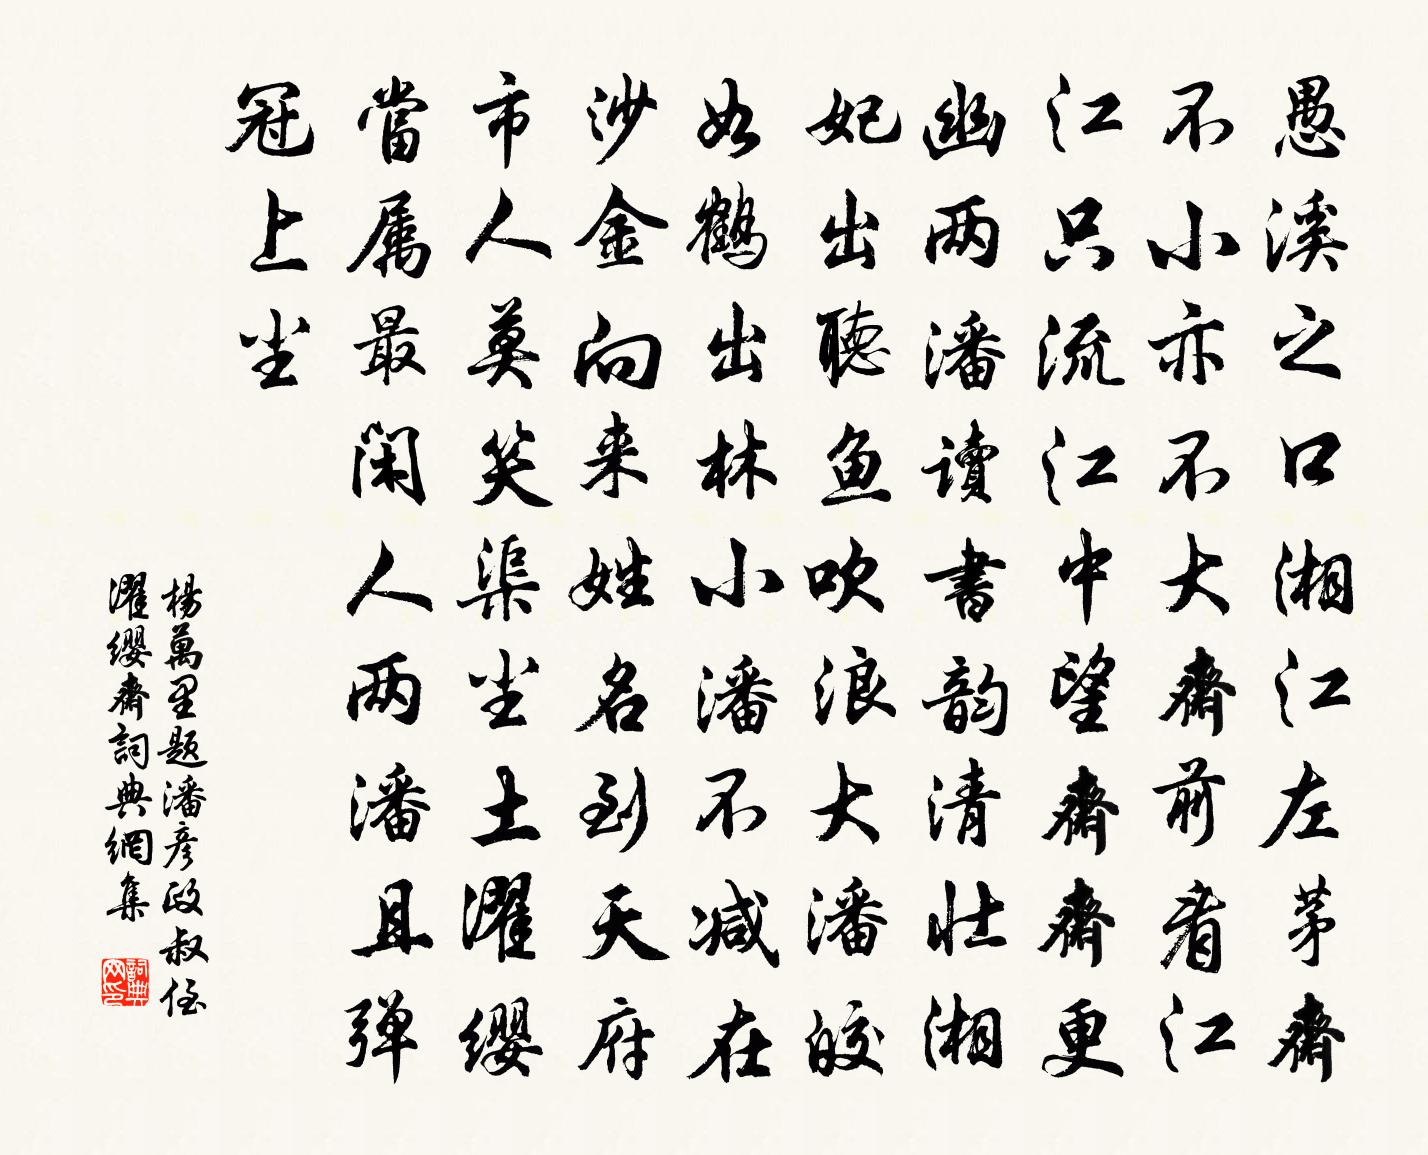 愚溪之口湘江左茅齋
不小亦不大齋前看江
江只流江中望齋齋更
幽两潘讀書韵清壯湘
妃出聽魚吹浪大潘皎
如鶴出林小潘不减在
沙金向来姓名到天府
市人莫笑渠坐土濯纓
當属最閑人两潘且弹
冠上坐
楊萬里题潘彦政叔侄
濯纓齋詞典網集
詞典网印